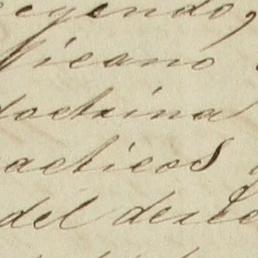 egendo,
icano
doctrina
acticos
del des